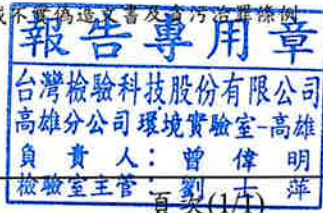 不實偽造文書及貪污治罪條例
報告專用章
台灣檢驗科技股份有限公司
高雄分公司環境實驗室-高雄
負責人：曾偉明
檢驗室主管：劉士萍
頁次(1/1)